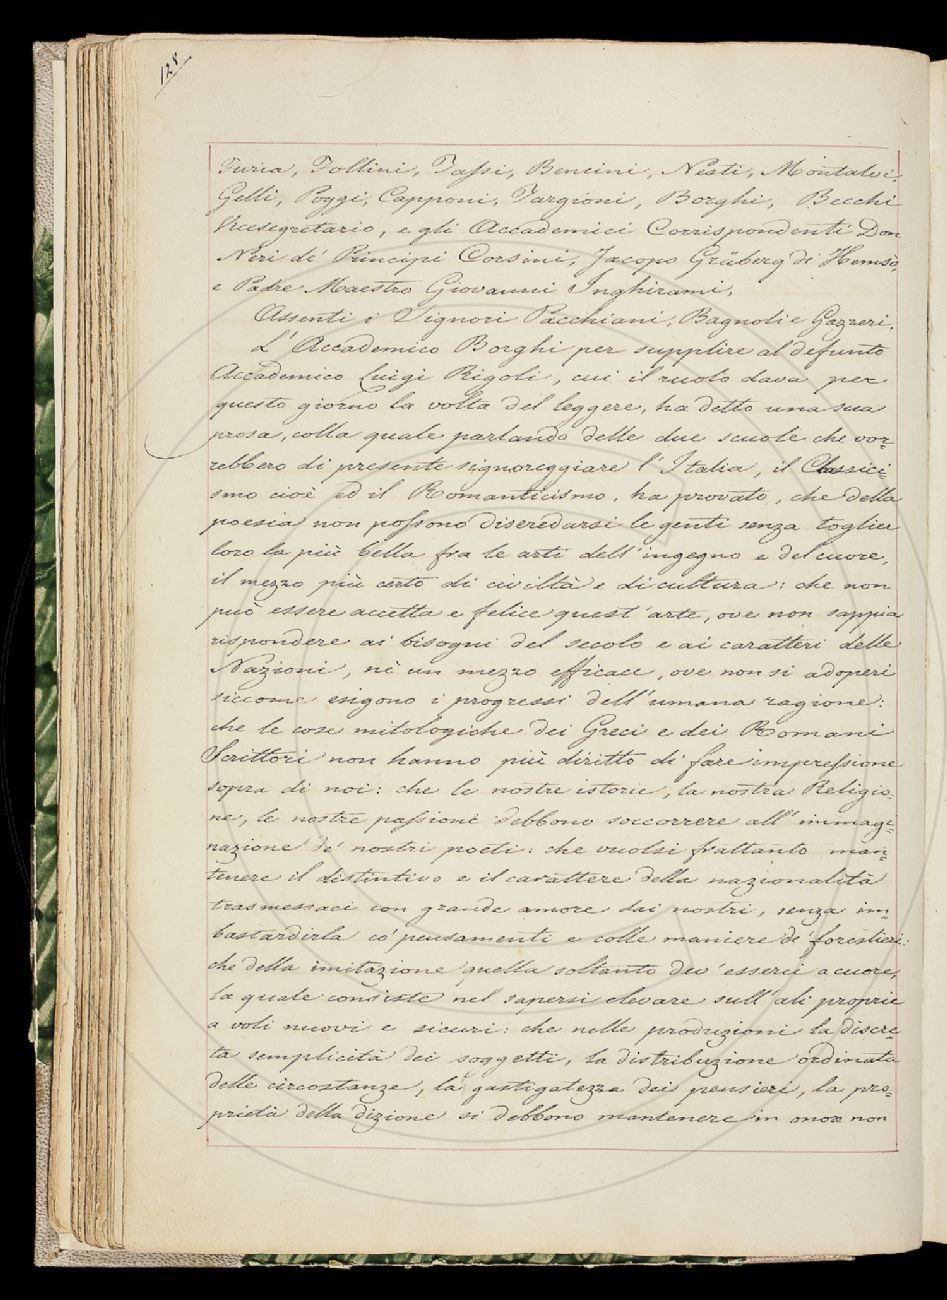 128
Furia, Follini, Tassi, Bencini, Nesti, Montalvi,
Gelli, Poggi, Capponi, Targioni, Borghi, Becchi
Vicesegretario, e gli Accademici Corrispondenti Don
Neri de' Principi Corsini, Jacopo Gräberg di Hemsö,
e Padre Maestro Giovanni Inghirami,
Assenti i Signori Pacchiani, Bagnoli e Gazzeri.
L'Accademico Borghi per supplire al defunto
Accademico Luigi Rigoli, cui il ruolo dava per
questo giorno la volta del leggere, ha detto una sua
prosa, colla quale parlando delle due scuole che vor=
rebbero di presente signoreggiare l'Italia, il Classici
smo cioè ed il Romanticismo, ha provato, che della
poesia non possono diseredarsi le genti senza toglier
loro la più bella fra le arti dell'ingegno e del cuore,
il mezzo più certo di civiltà e di cultura: che non
può essere accetta e felice quest'arte, ove non sappia
rispondere ai bisogni del secolo e ai caratteri delle
Nazioni, nè un mezzo efficace, ove non si adoperi
siccome esigono i progressi dell'umana ragione:
che le cose mitologiche dei Greci e dei Romani
Scrittori non hanno più diritto di fare impressione
sopra di noi: che le nostre istorie, la nostra Religio=
ne, le nostre passioni debbono soccorrere all'immagi=
nazione de' nostri poeti: che vuolsi frattanto man=
tenere il distintivo e il carattere della nazionalità
trasmessaci con grande amore dai nostri, senza im=
bastardirla co' pensamenti e colle maniere de' forestieri:
che della imitazione quella soltanto dev'esserci a cuore,
la quale consiste nel sapersi elevare sull'ali proprie
a voli nuovi e sicuri: che nelle produzioni la discre=
ta semplicità dei soggetti, la distribuzione ordinata
delle circostanze, la gastigatezza dei pensieri, la pro=
prietà della dizione si debbono mantenere in onor non